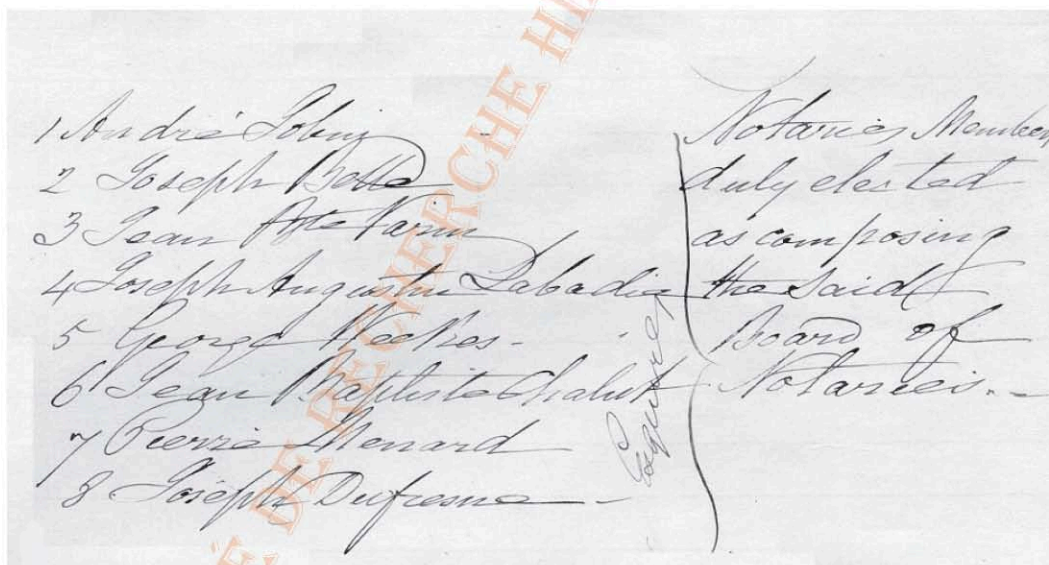 1 André Jobin
2 Joseph Belle
3 Jean Bte Varin
4 Joseph Augustin Labadie
5 George Weekes -
6 Jean Baptiste Chalut
7 Pierre Menard
8 Joseph Dufresne -
Esquires
Notaries, Members
duly elected
as composing
the Said
Board of
Notaries. -
É DE RECHERCHE HI